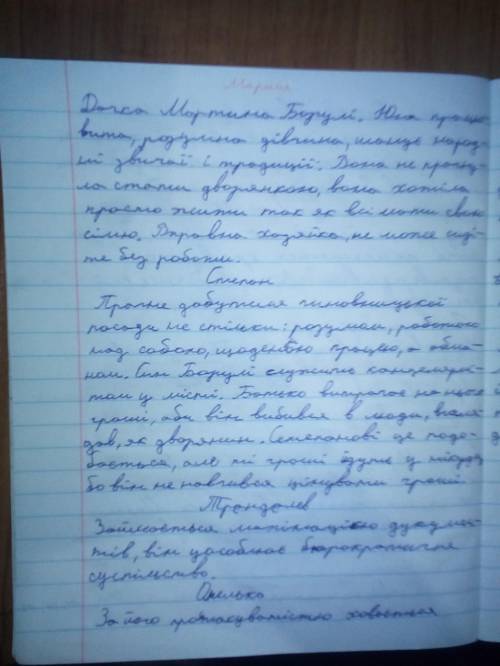 Марися
Дочка Мартина Борулі. Юна працьо
вита, розумна дівчина, шанує народ
ні звичаї і традиції. Вона не прагну
ла стати дворянкою, вона хотіла
просто жити так як всі мати свою
сім'ю. Вправна хазяйка, не може сиді
ти без роботи.
Степан
Прагне добутися чиновницької
посади не стільки: розумом, роботою
над собою, щоденною працею, а обма
ном. Син Борулі служить канцеляри
том у місті. Батько витрачає на нього
гроші, аби він вибився в люди, вигля
дав, як дворянин. Степанові це подо-
бається, але ті гроші йдуть у нікуди
бо він не навчився цінувати гроші
Трандалєв
Займається махінацією документ
тів, він уособлює бюрократичне
суспільство.
Омелько
За його простакуватістю ховається